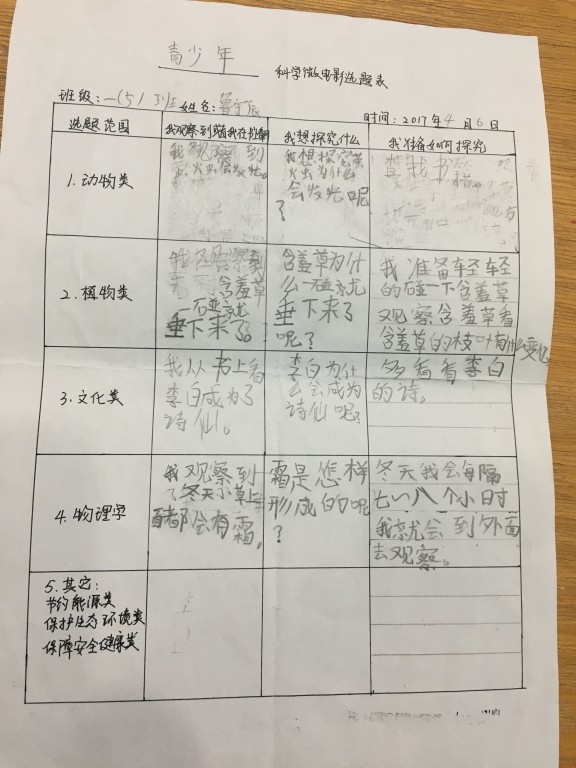 青少年 科学微电影选题表
班级:一(5)班 姓名: 时间:2017年4月6日
选题范围 我观察到 我想探究什么 我准备如何探究
1.动物类
我观察到
火虫会发光。
我想探究萤
火虫为什么
会发光呢
?
查找书
2.植物类
我观察到
含羞草
一碰就
垂下来了。
含羞草为什
么一碰就
垂下来了
呢?
我准备轻轻
的碰一下含羞草
观察含羞草看
含羞草的枝叶有什么变化
3.文化类
我从书上看
李白成为了
诗仙。
李白为什
么会成为
诗仙呢?
多看看李白
的诗。
4.物理学
我观察到
了冬天小草上
都会有霜。
霜是怎样
形成的呢
?
冬天我会每隔
七八个小时
我就会到外面
去观察。
5.其它:
节约能源类
保护生态环境类
保障安全健康类